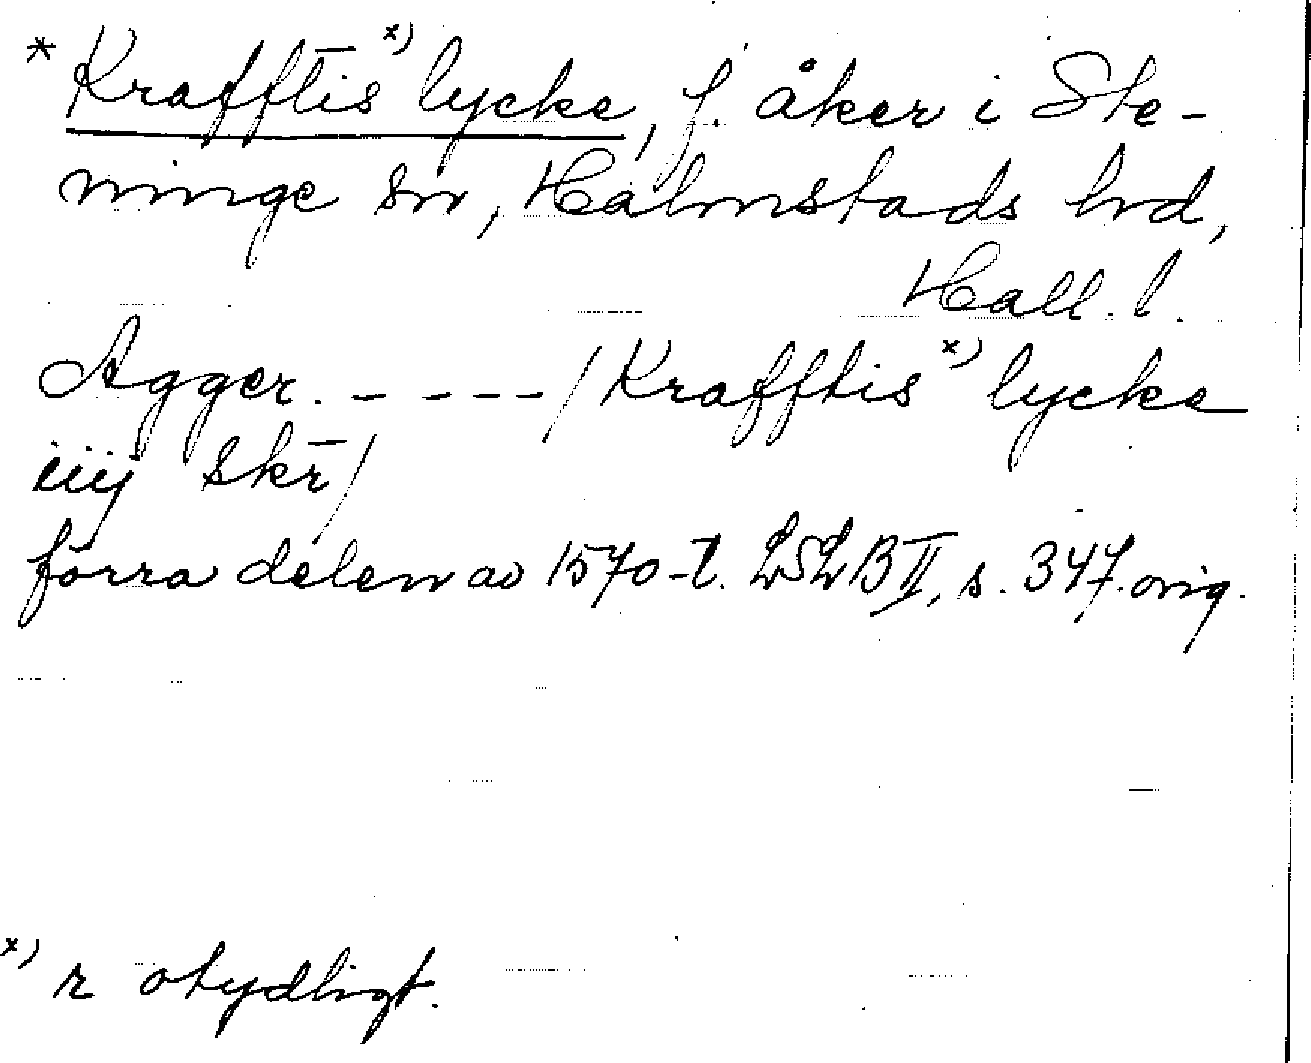 * Krafftis x) lycke, f. åker i Ste-
ninge sn, Halmstads hd,
Hall. l.
Agger. - - - - - / Krafftis x) lycke
iiij skr̄ /
förra delen av 1570-t. LSLB II, s. 347. orig.
x) r otydligt.